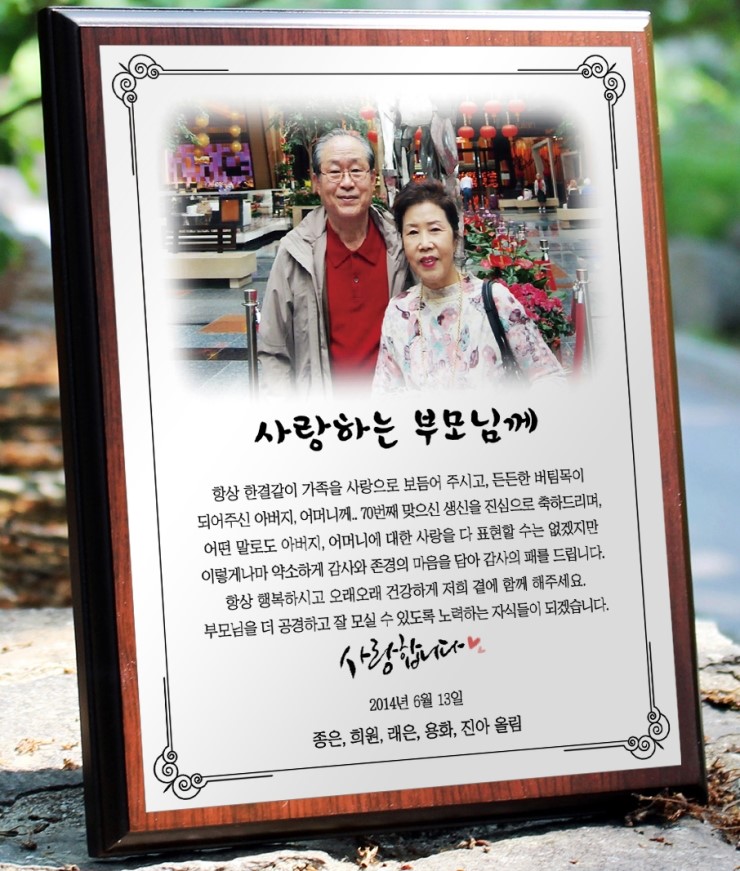 사랑하는 부모님께
항상 한결같이 가족을 사랑으로 보듬어 주시고, 든든한 버팀목이
되어주신 아버지, 어머니께.. 70번째 맞으신 생신을 진심으로 축하드리며,
어떤 말로도 아버지, 어머니에 대한 사랑을 다 표현할 수는 없겠지만
이렇게나마 약소하게 감사와 존경의 마음을 담아 감사의 패를 드립니다.
항상 행복하시고 오래오래 건강하게 저희 곁에 함께 해주세요.
부모님을 더 공경하고 잘 모실 수 있도록 노력하는 자식들이 되겠습니다.
사랑합니다
2014년 6월 13일
종은, 희원, 래은, 용화, 진아 올림